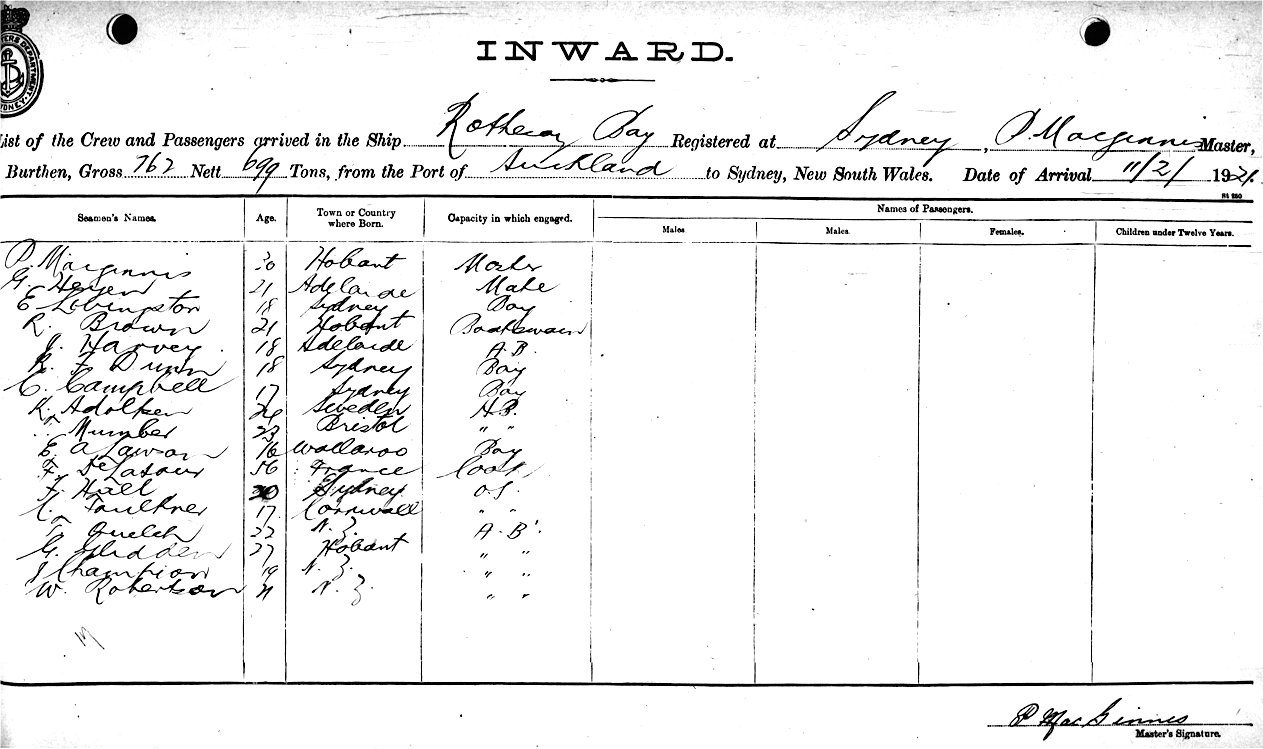 INWARD.
List of the Crew and Passengers arrived in the Ship Rothesay Bay Registered at Sydney, P. Macginnis Master,
Burthen, Gross 762 Nett 699 Tons, from the Port of Auckland to Sydney, New South Wales. Date of Arrival 11/2/1921.
Seamen's Names. Age. Town or Country where Born. Capacity in which engaged. Names of Passengers.
Males Males. Females. Children under Twelve Years.
P. Macginnis 30 Hobart Master
G. 21 Adelaide Mate
E Livingston 18 Sydney Boy
R. Brown 21 Hobart Boatswain
J. Harvey 18 Adelaide A.B.
R. F Dunn 18 Sydney Boy
C. Campbell 17 Sydney Boy
K. 26 Sweden A.B.
Mumber 23 Bristol " "
E. A Lawson 16 Wallaroo Boy
F. 56 France Cook
F. Hall 20 Sydney O.S.
C. Faulkner 17 Cornwall " "
T. Quelch 22 N.Z. A.B.
G. 27 Hobart " "
J Champion 19 N.Z. " "
W. Robertson 21 N.Z. " "
17
P MacGinnes
Master's Signature.